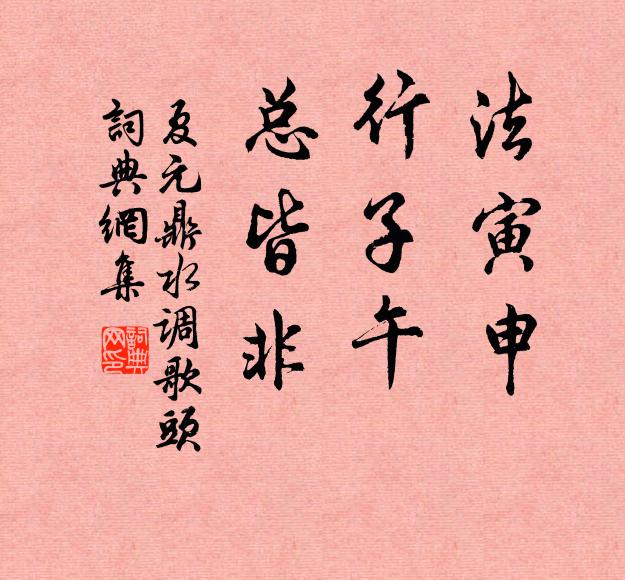 法寅申
行子午
总皆非
夏元鼎水调歌頭
詞典網集
詞典网印